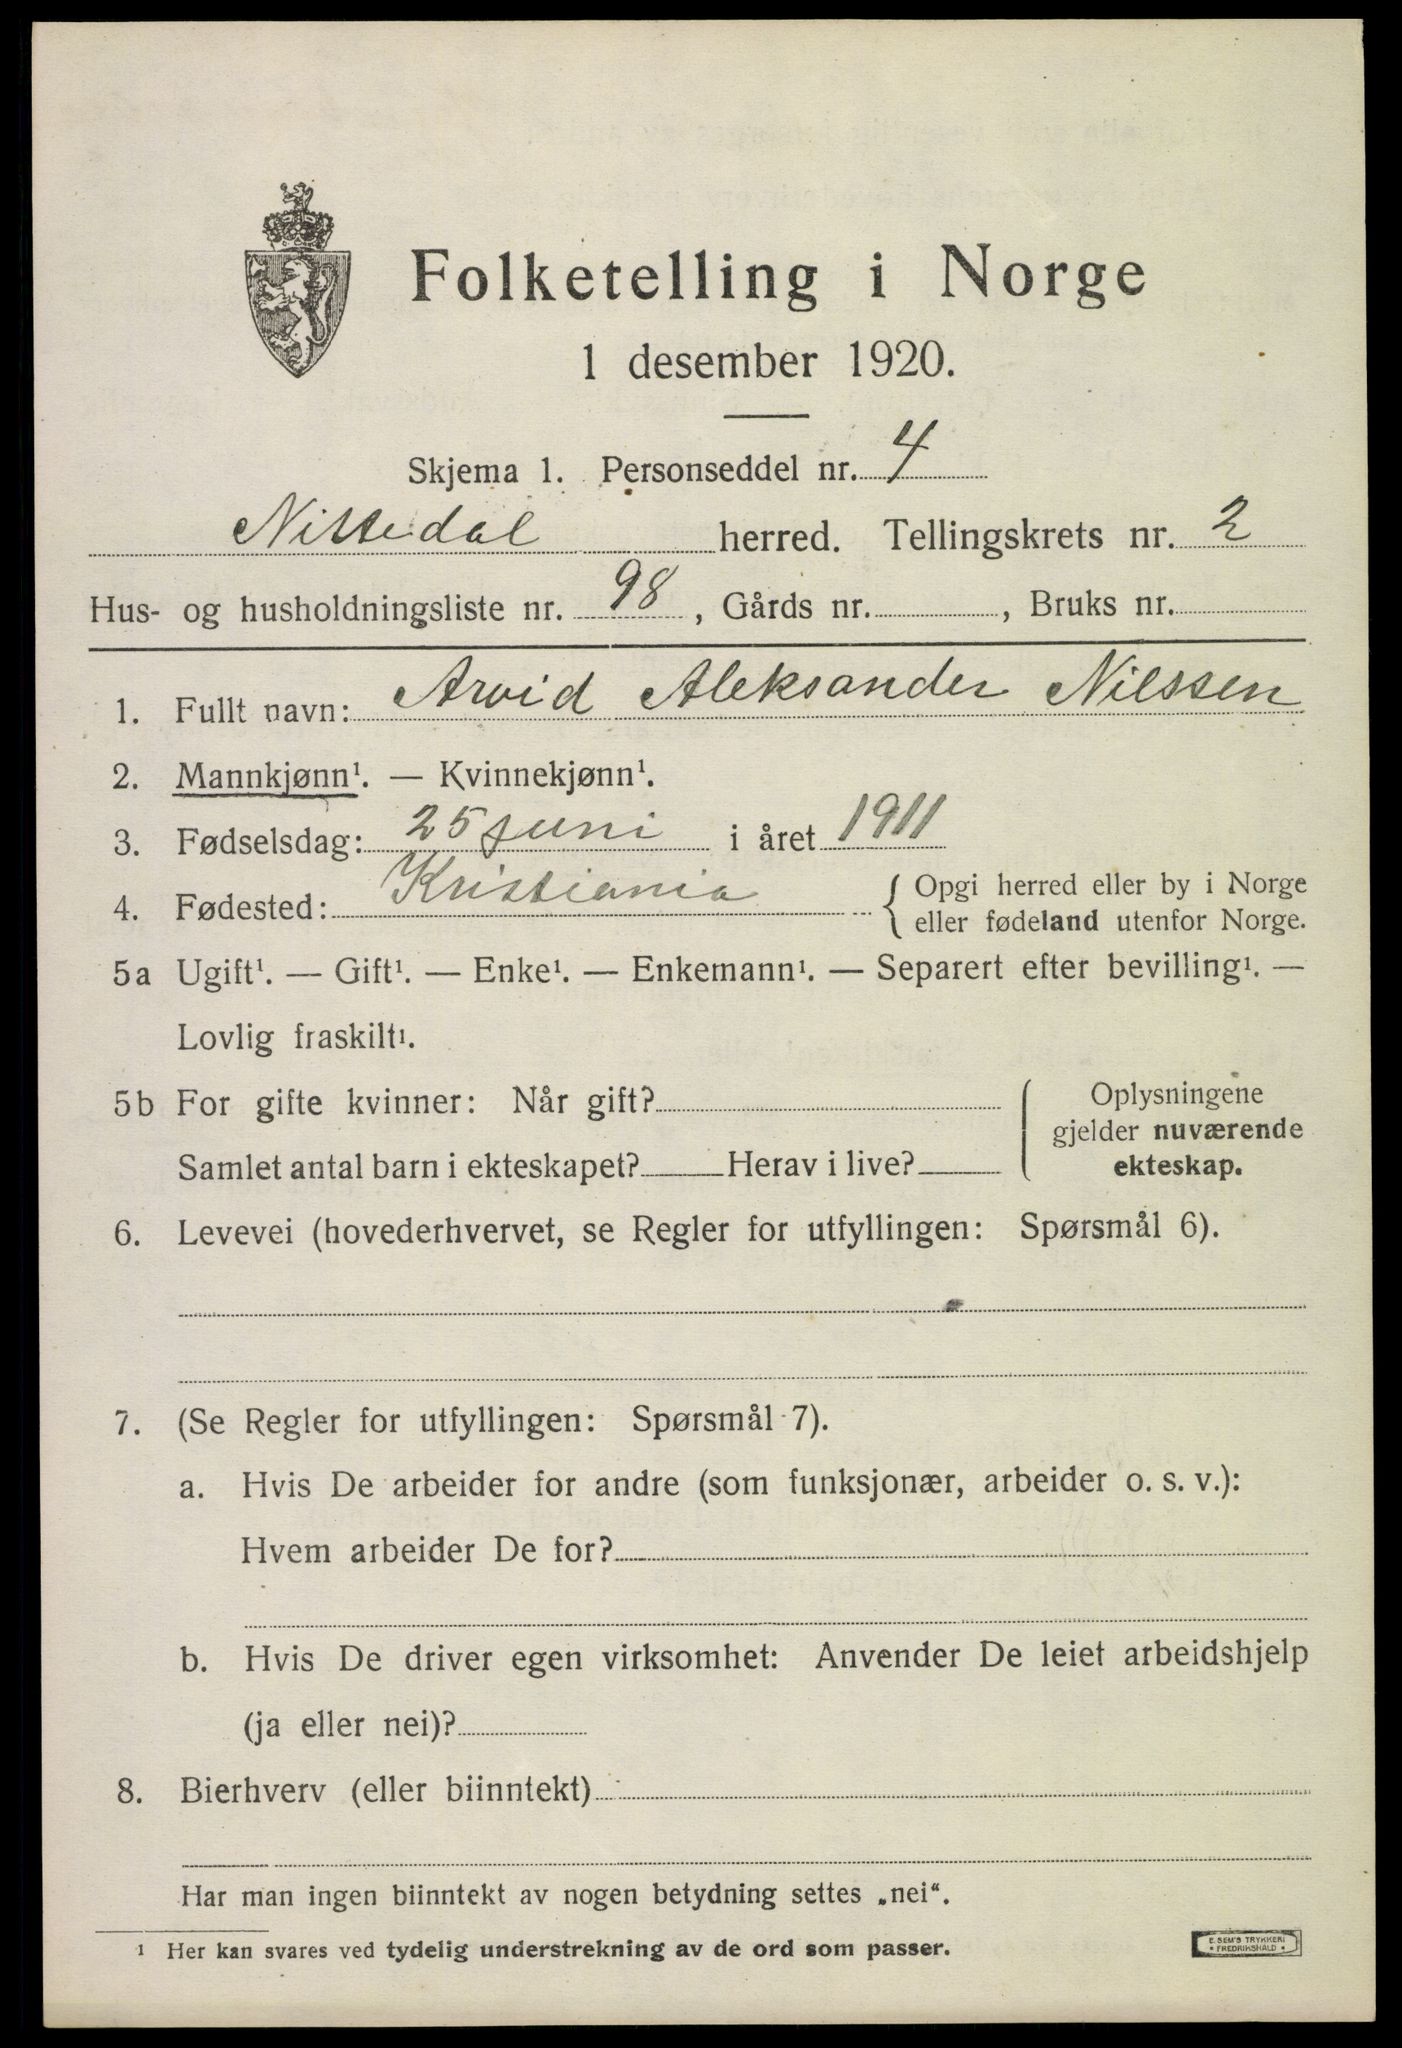 Folketelling i Norge
1 desember 1920.
Skjema 1. Personseddel nr. 4
Nittedal herred. Tellingskrets nr. 2
Hus- og husholdningsliste nr. 98, Gårds nr. , Bruks nr.
1. Fullt navn: Arvid Aleksander Nilssen
2. Mannkjønn¹. — Kvinnekjønn¹.
3. Fødselsdag: 25 juni i året 1911
4. Fødested: Kristiania { Opgi herred eller by i Norge
eller fødeland utenfor Norge.
5a Ugift¹. — Gift¹. — Enke¹. — Enkemann¹. — Separert efter bevilling¹. —
Lovlig fraskilt¹.
5b For gifte kvinner: Når gift? { Oplysningene
gjelder nuværende
Samlet antal barn i ekteskapet? Herav i live? ekteskap.
6. Levevei (hovederhvervet, se Regler for utfyllingen: Spørsmål 6).
7. (Se Regler for utfyllingen: Spørsmål 7).
a. Hvis De arbeider for andre (som funksjonær, arbeider o. s. v.):
Hvem arbeider De for?
b. Hvis De driver egen virksomhet: Anvender De leiet arbeidshjelp
(ja eller nei)?
8. Bierhverv (eller biinntekt)
Har man ingen biinntekt av nogen betydning settes „nei“.
¹ Her kan svares ved tydelig understrekning av de ord som passer.
E. SEM'S TRYKKERI
• FREDRIKSHALD •